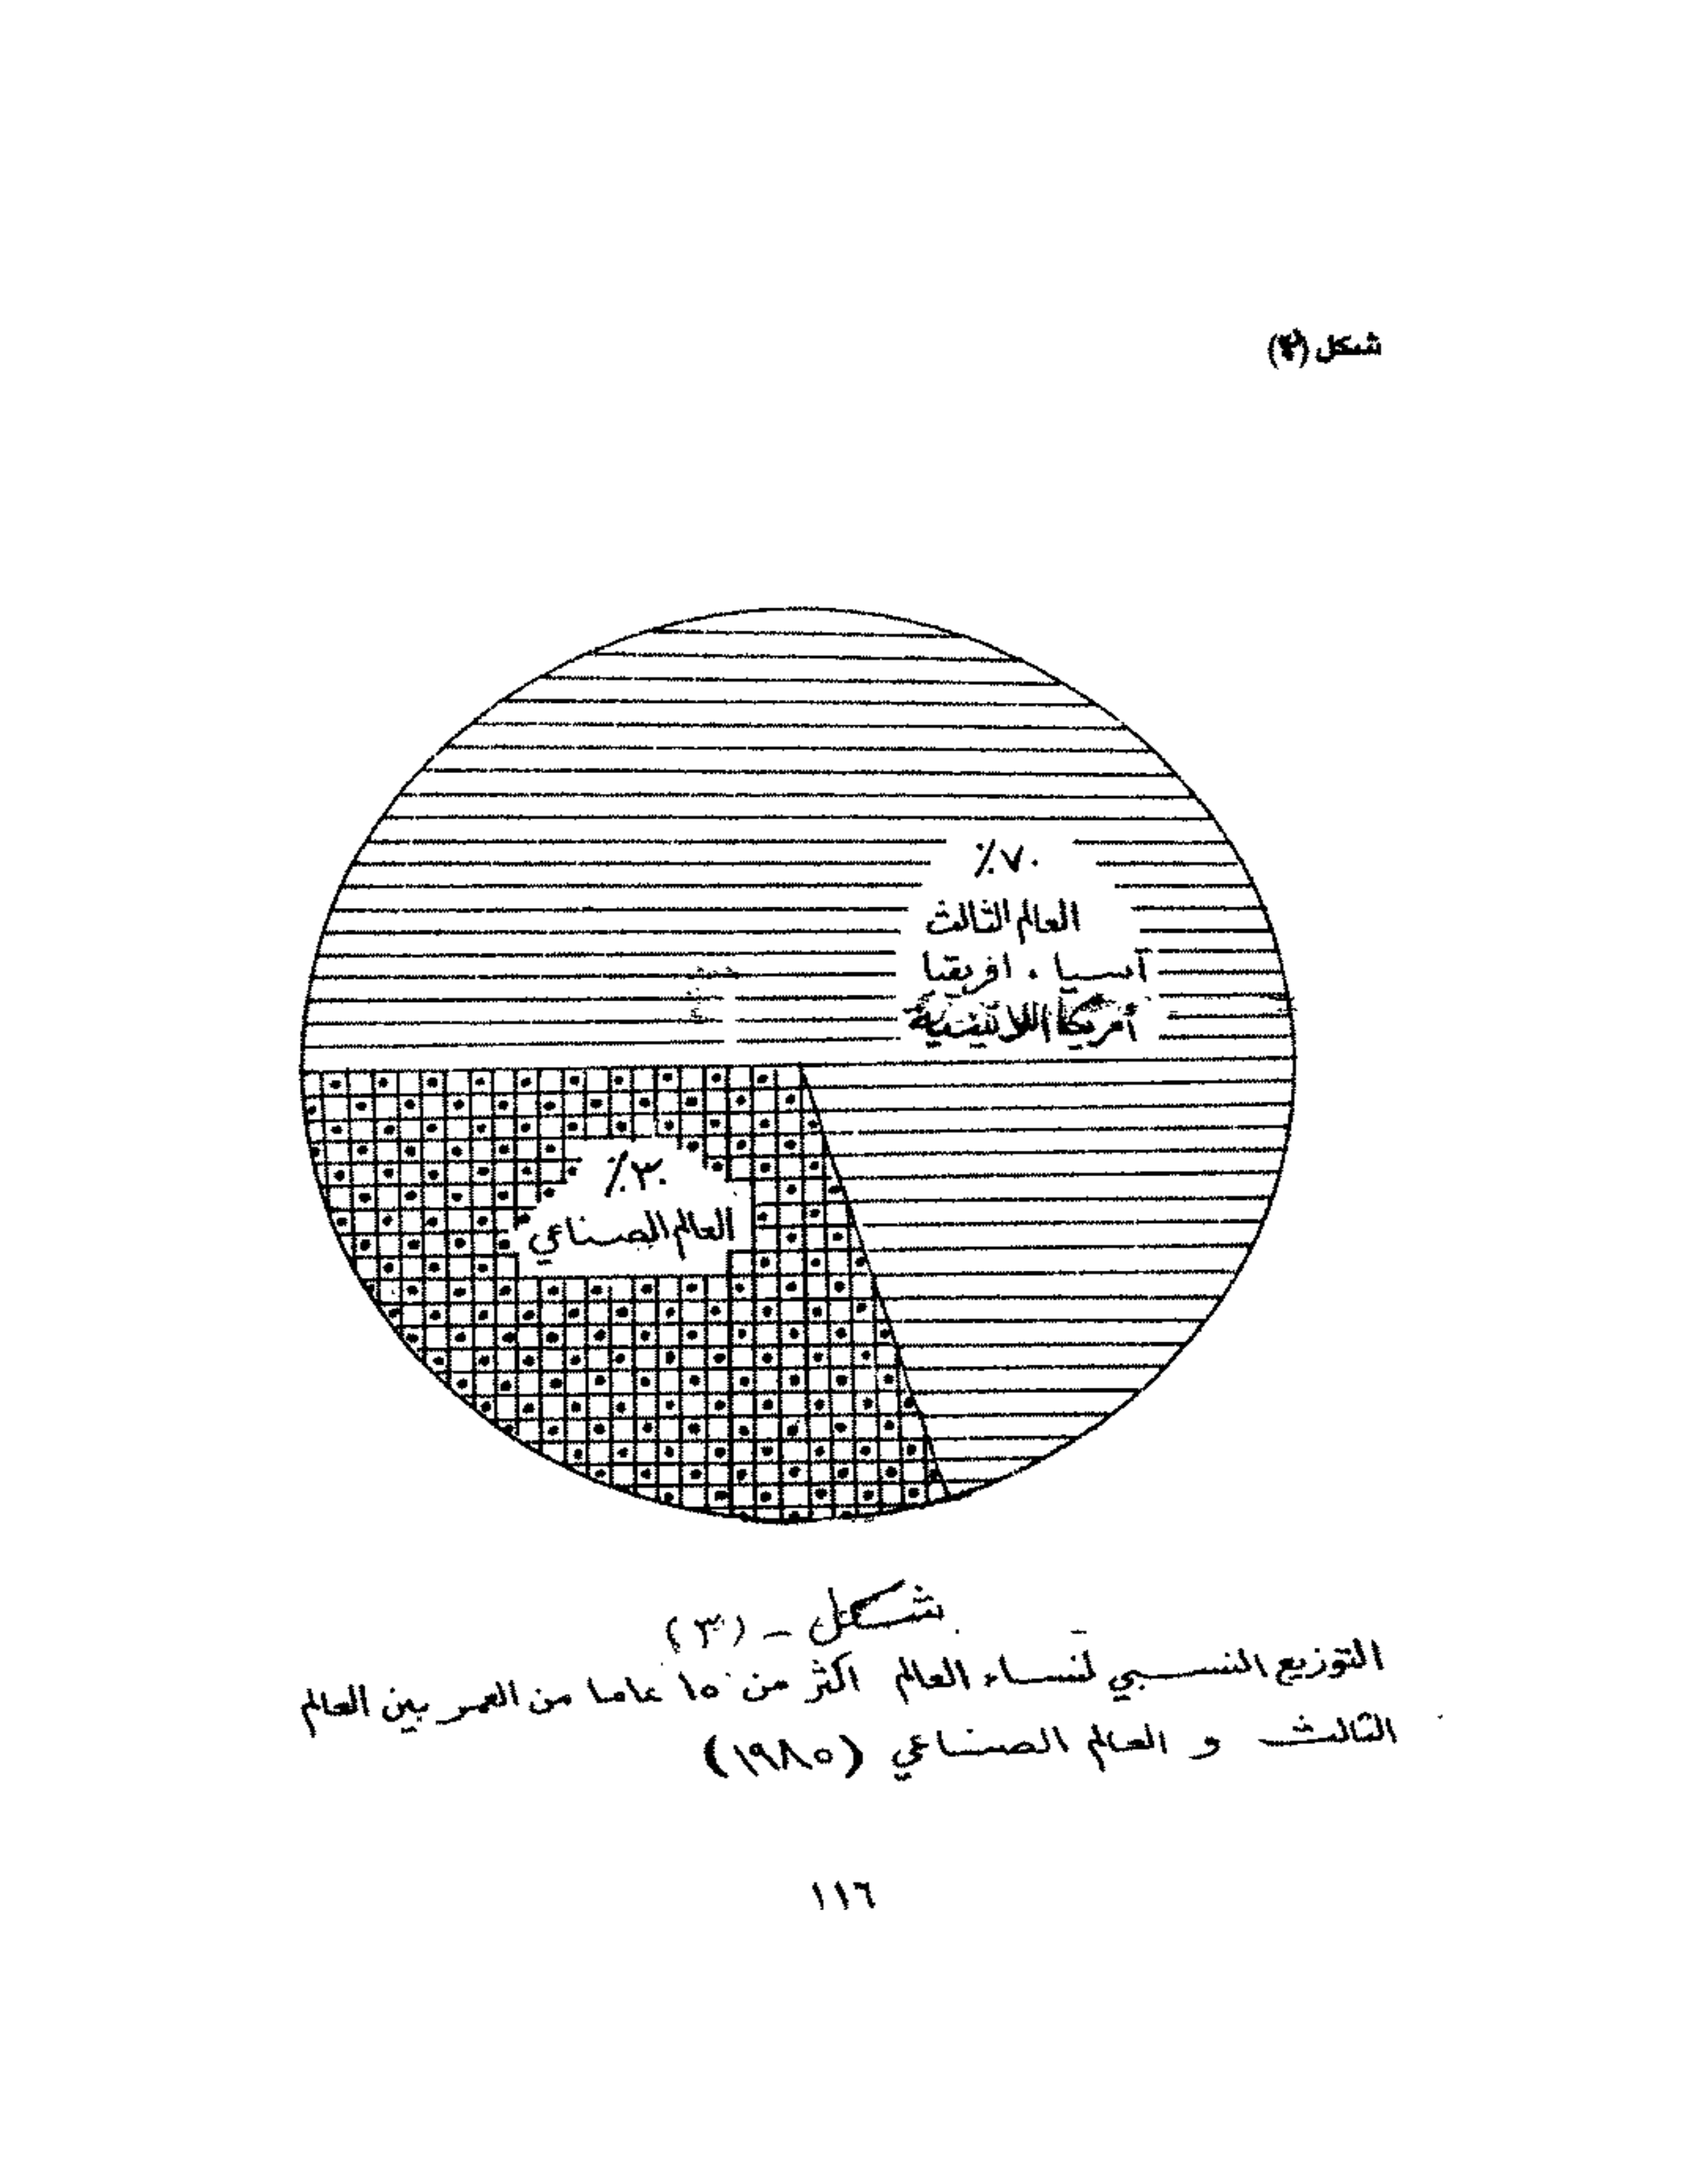 شكل (٣)
٧٠٪
العالم الثالث
آسيا . افريقيا
أمريكا اللاتينية
٣٠٪
العالم الصناعي
شكل - (٣)
التوزيع النسبي لنساء العالم اكثر من ١٥ عاما من العمر بين العالم
الثالث و العالم الصناعي (١٩٨٥)
١١٦